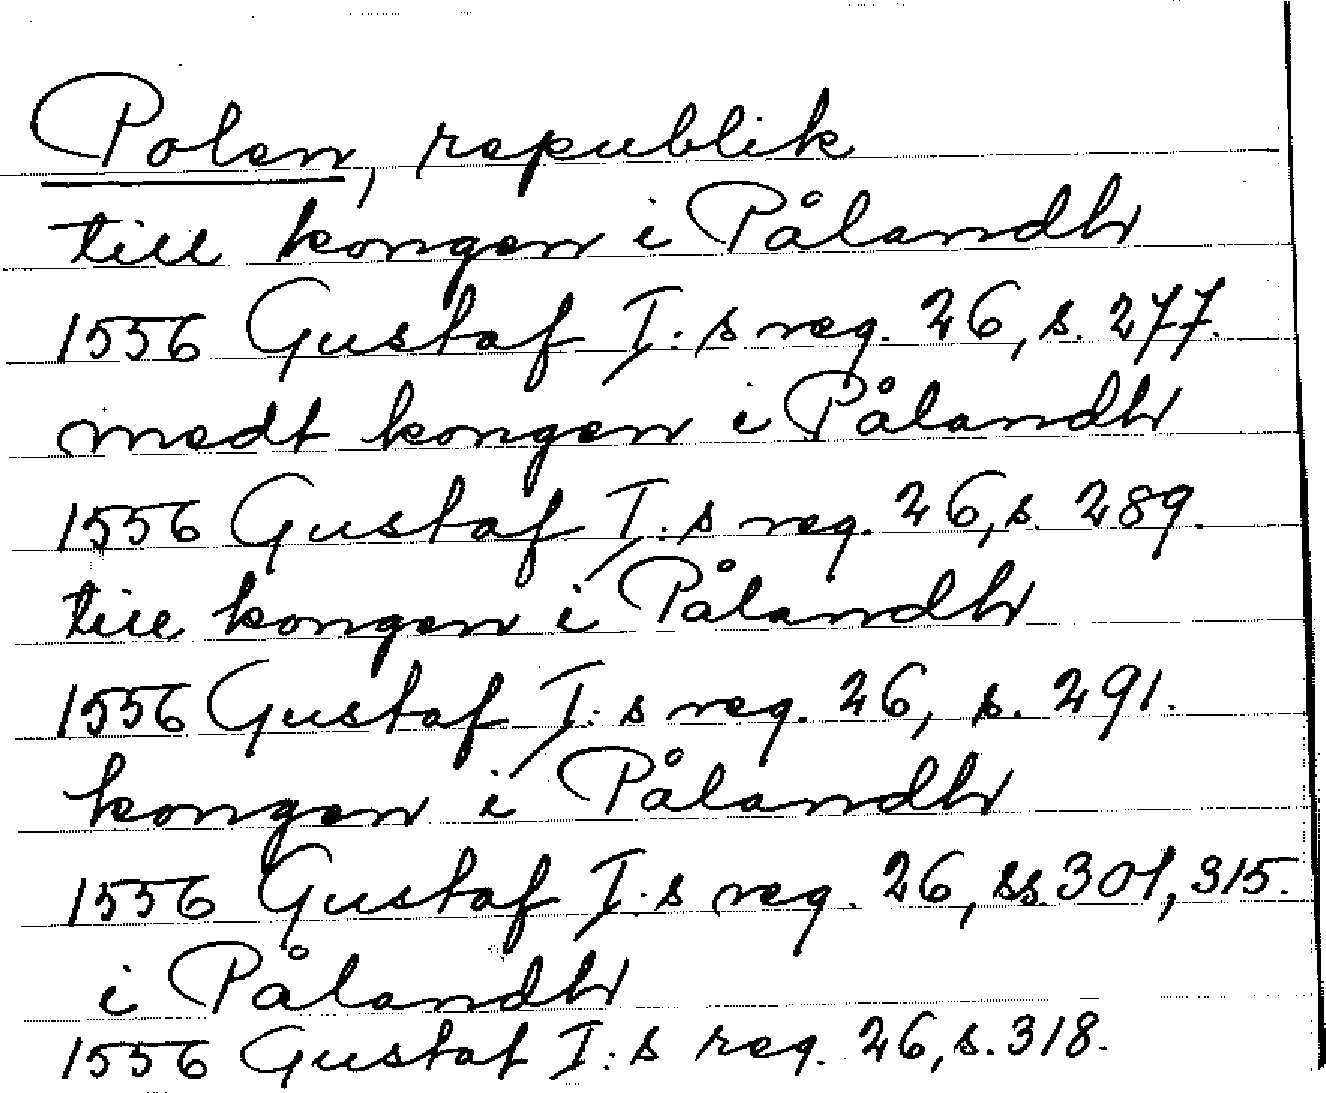 Polen, republik
till kongen i Pålandh
1556 Gustaf I:s reg. 26, s. 277.
medt kongen i Pålandh
1556 Gustaf I:s reg. 26, s. 289.
till kongen i Pålandh
1556 Gustaf I:s reg. 26, s. 291.
kongen i Pålandh
1556 Gustaf I:s reg. 26, ss. 301, 315.
i Pålandh
1556 Gustaf I:s reg. 26, s. 318.